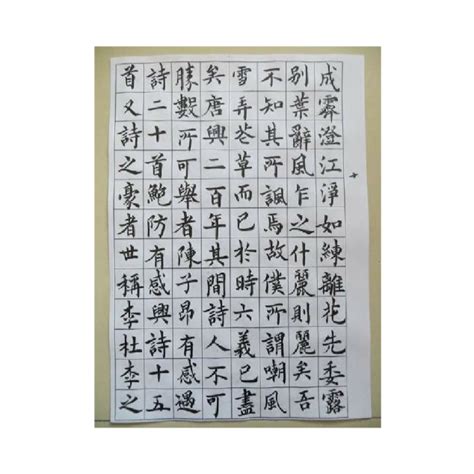 成霽澄江淨如練離花先委露
別葉辭風乍之什麗則麗矣吾
不知其所諷焉故僕所謂嘲風
雪弄花草而已於時六義已盡
矣唐興二百年其間詩人不可
勝數所可舉者陳子昂有感遇
詩二十首鮑防有感興詩十五
首又詩之豪者世稱李杜李之